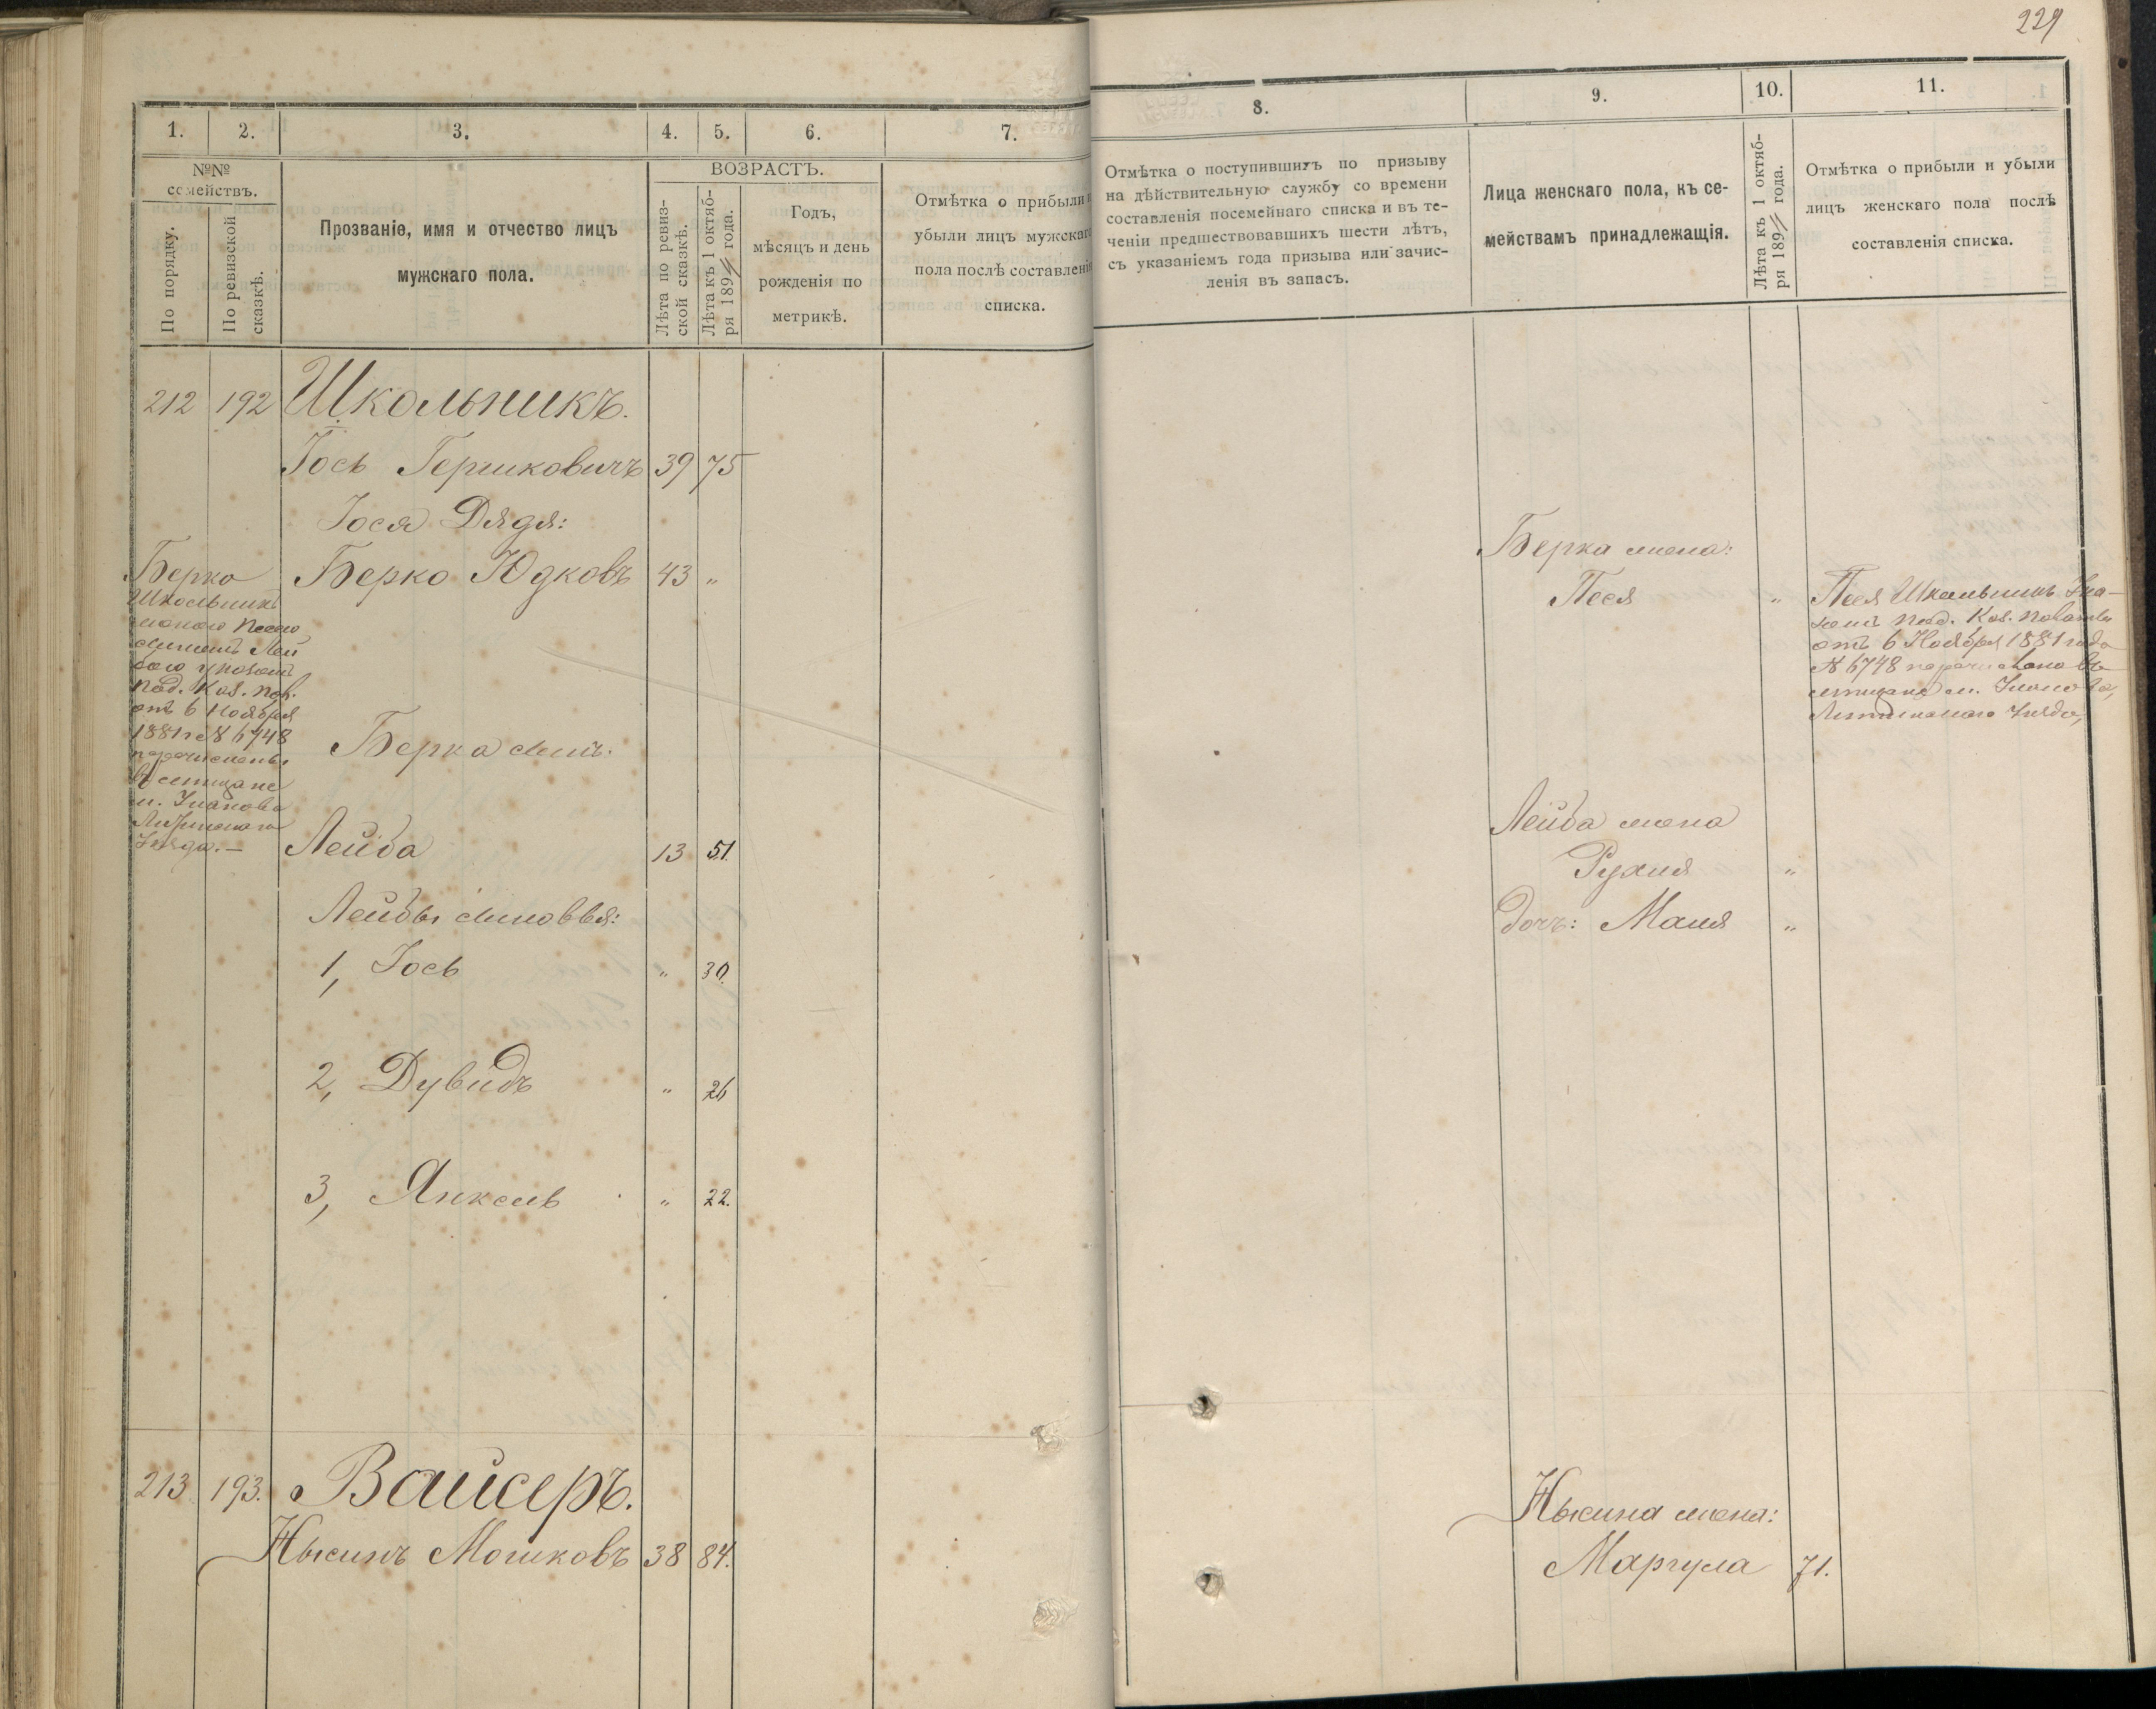 229
1.
2.
3.
4.
5.
6.
7.
№№ семействъ.
По порядку.
По ревизской сказкѣ.
Прозваніе, имя и отчество лицъ
мужскаго пола.
ВОЗРАСТЪ.
Лѣта по ревиз-
ской сказкѣ.
Лѣта къ 1 октяб-
ря 189 года.
Годъ,
мѣсяцъ и день
рожденія по
метрикѣ.
Отмѣтка о прибыли
убыли лицъ мужскаго
пола послѣ составленія
списка.
8.
9.
10.
11.
Отмѣтка о поступившихъ по призыву
на дѣйствительную службу со времени
составленія посемейнаго списка и въ те-
ченіи предшествовавшихъ шести лѣтъ,
съ указаніемъ года призыва или зачис-
ленія въ запасъ.
Лица женскаго пола, къ се-
мействамъ принадлежащія.
Лѣта къ 1 октяб-
ря 189 года.
Отмѣтка о прибыли и убыли
лицъ женскаго пола послѣ
составленія списка.
212 192 Школьникъ.
Іось Гершковичъ 39 75
Іося Дядя:
Берко Юдковъ 43 "
Берко
Школьникъ
Лей
Под. Каз. Пол.
отъ 6 Ноября
1881 г № 6748
перечислены
въ мещане
м. Уланова
Литинского
Уезда.—
Берка сынъ:
Лейба 13 51.
Лейбы сыновья:
1, Іось " 30.
2, Дувидъ " 26
3, Янкель " 22.
213 193. Вайсеръ.
Нысинъ Мошковъ 38 84.
Берка жена:
Песя "
Песя Школьникъ Ука-
зомъ Под. Каз. Палаты
отъ 6 Ноября 1881 года
№ 6748 перечислена въ
мещане м. Уланова,
Литинского Уезда,
Лейба жена
Рухля "
дочь: Маля "
Нысина жена:
Маргула 71.